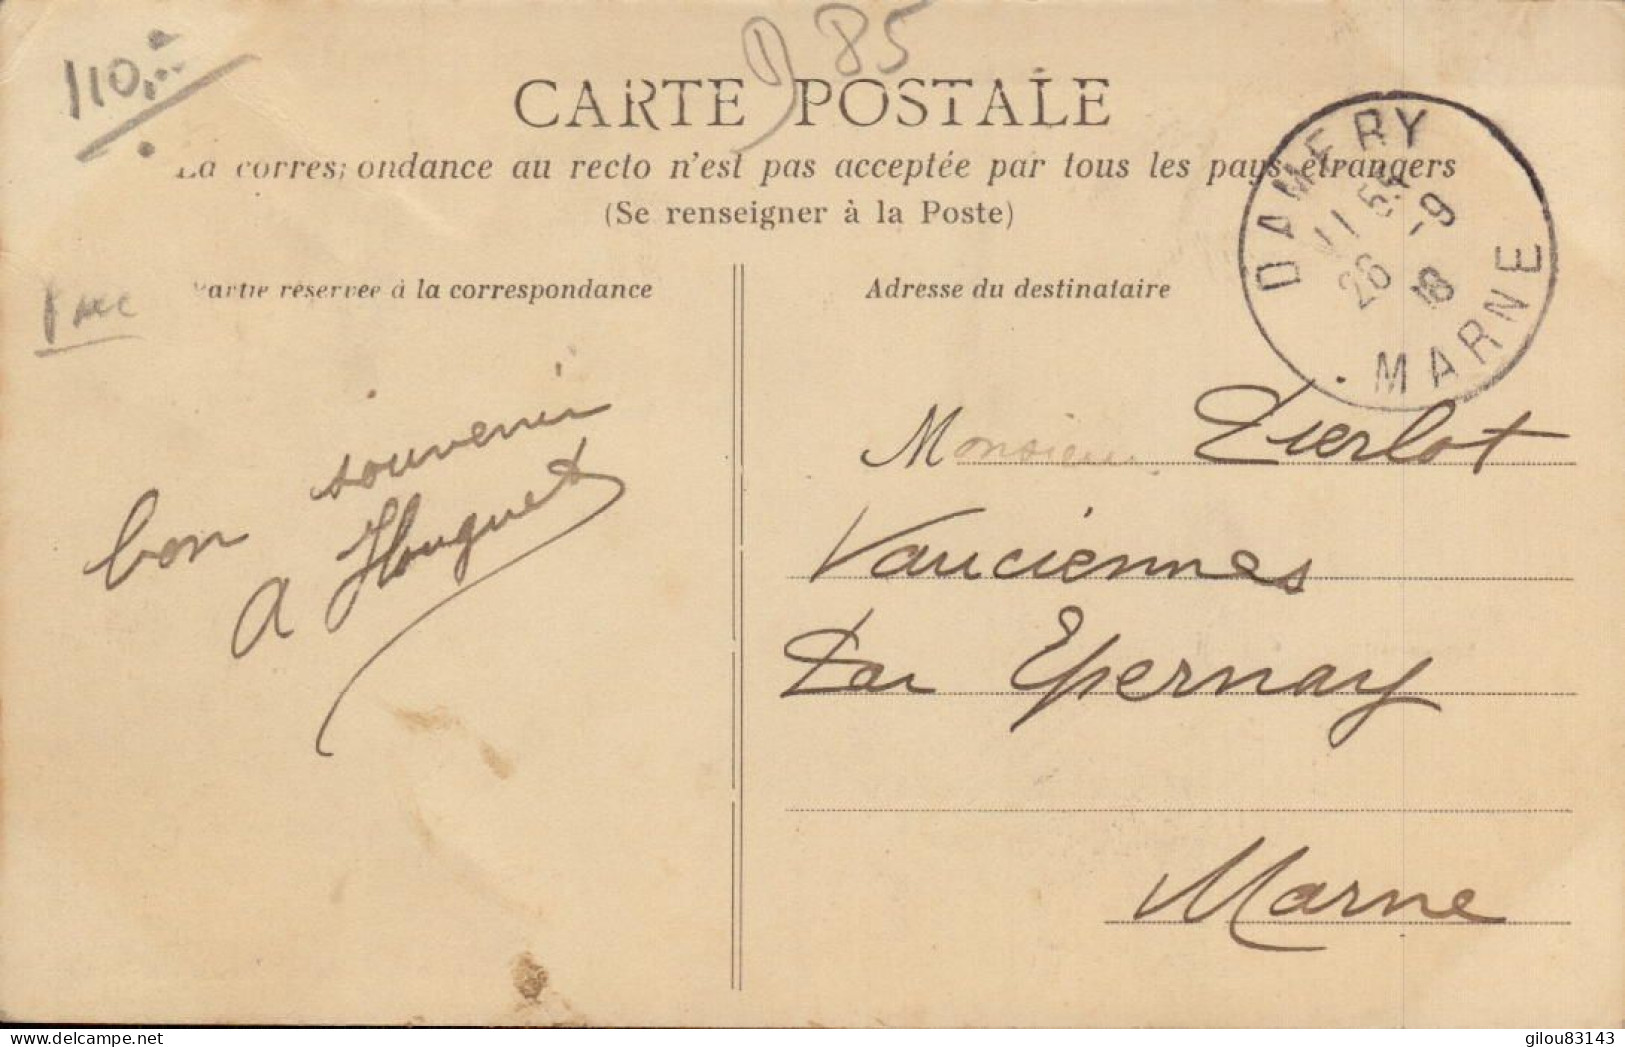 110,-
985
CARTE POSTALE
La correspondance au recto n'est pas acceptée par tous les pays étrangers
(Se renseigner à la Poste)
Partie réservée à la correspondance
Adresse du destinataire
DAMERY
11 55
26 -9
18
MARNE
bon souvenir
A Houguet
Monsieur Lierlot
Vauciennes
Par Epernay
Marne
delcampe.net
gilou83143